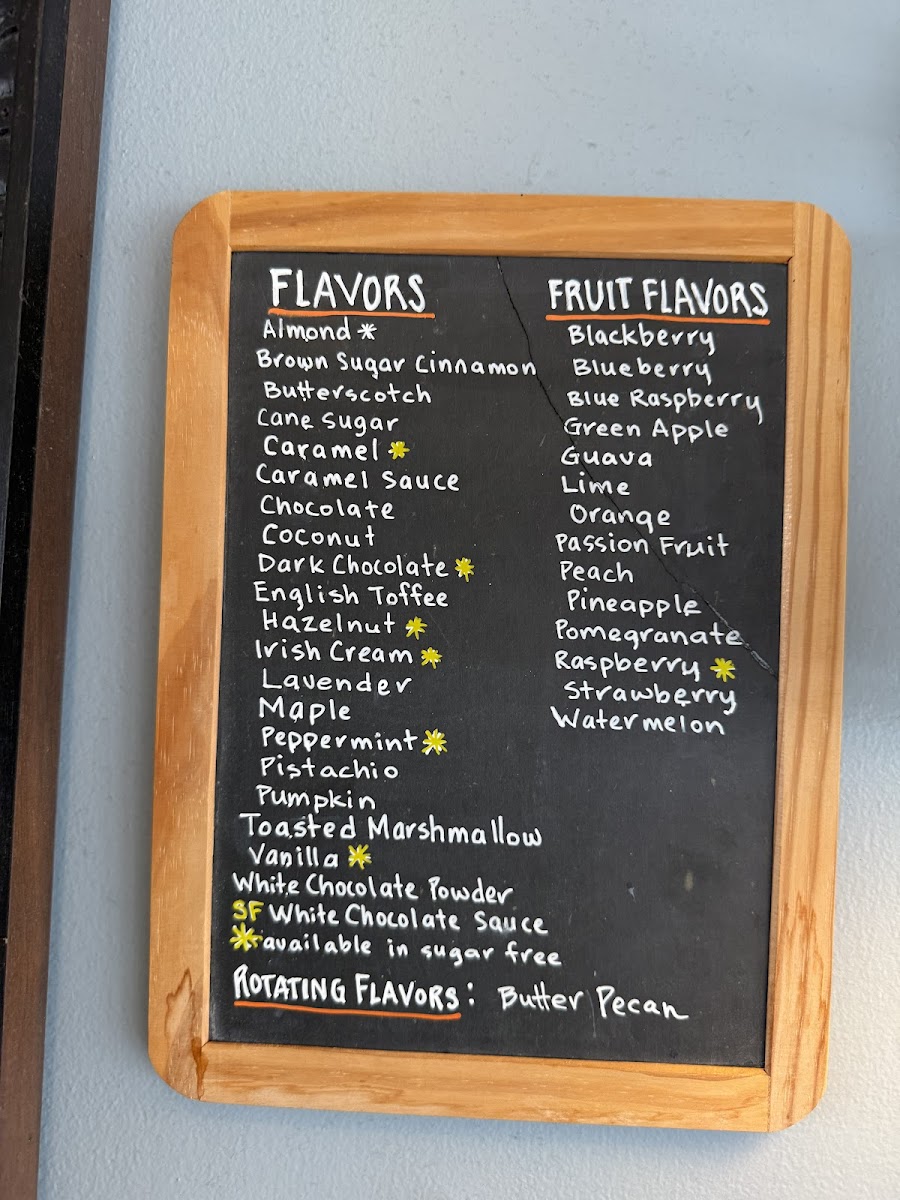 FLAVORS
Almond *
Brown Sugar Cinnamon
Butterscotch
Cane Sugar
Caramel *
Caramel Sauce
Chocolate
Coconut
Dark Chocolate *
English Toffee
Hazelnut *
Irish Cream *
Lavender
Maple
Peppermint *
Pistachio
Pumpkin
Toasted Marshmallow
Vanilla *
White Chocolate Powder
SF White Chocolate Sauce
* available in sugar free
ROTATING FLAVORS: Butter Pecan
FRUIT FLAVORS
Blackberry
Blueberry
Blue Raspberry
Green Apple
Guava
Lime
Orange
Passion Fruit
Peach
Pineapple
Pomegranate
Raspberry *
Strawberry
Watermelon